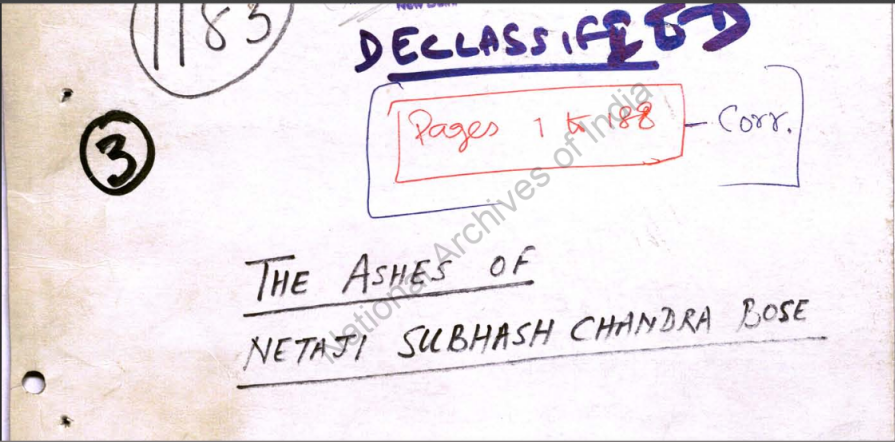 1183
NEW DELHI
DECLASSIFIED
Pages 1 to 188 - Corr.
3
THE ASHES OF
NETAJI SUBHASH CHANDRA BOSE
National Archives of India